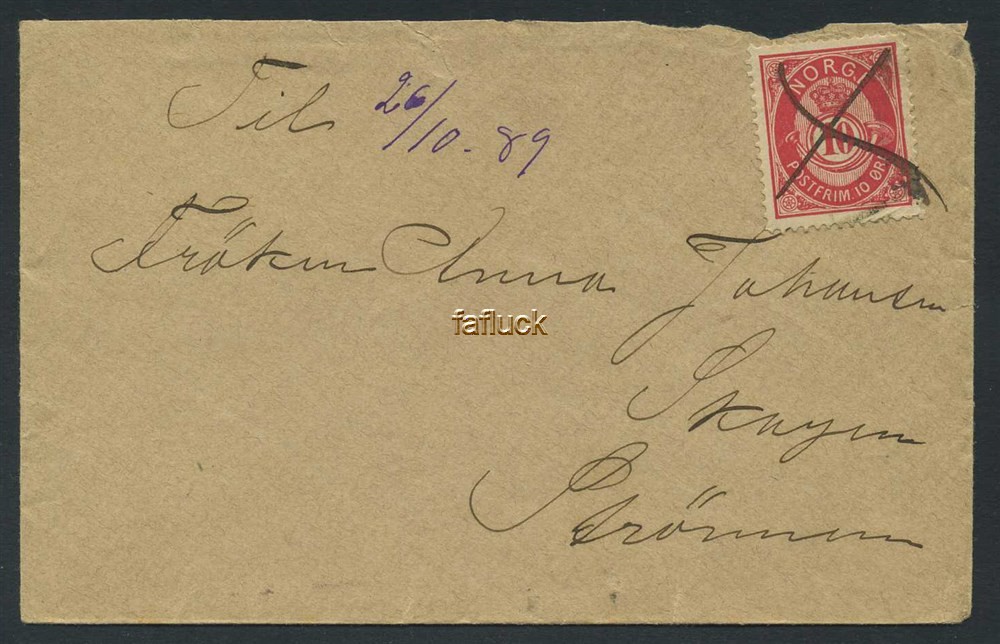 Til 26/10-89
NORGE
10
POSTFRIM. 10 ØRE
Fröken Anna Johansen
fafluck
Skøyen
Strömmen